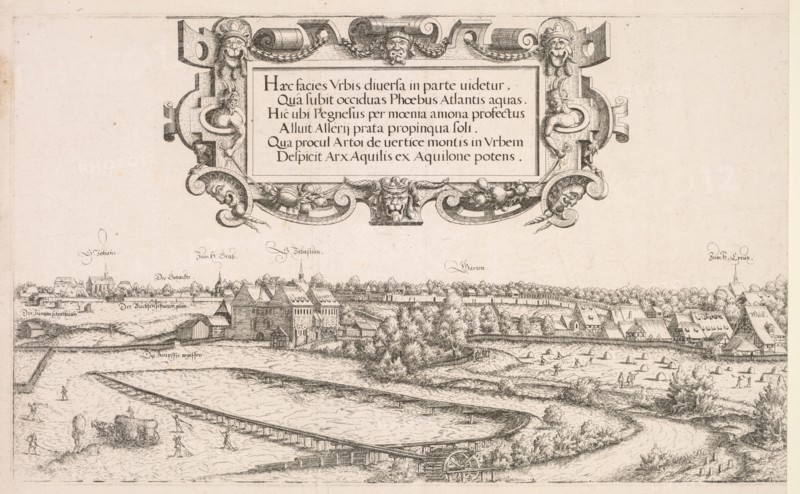 Hæc facies Vrbis diuersa in parte uidetur,
Quâ subit occiduas Phœbus Atlantis aquas.
Hîc ubi Pegnesus per mœnia amœna profectus
Alluit Asserij prata propinqua soli.
Qua procul Artoi de uertice montis in Vrbem
Despicit Arx Aquilis ex Aquilone potens.
S. Johans
Zum H. Grab.
S. Sebastian.
Gärten
Zum H. Creutz.
Der
Der
Die